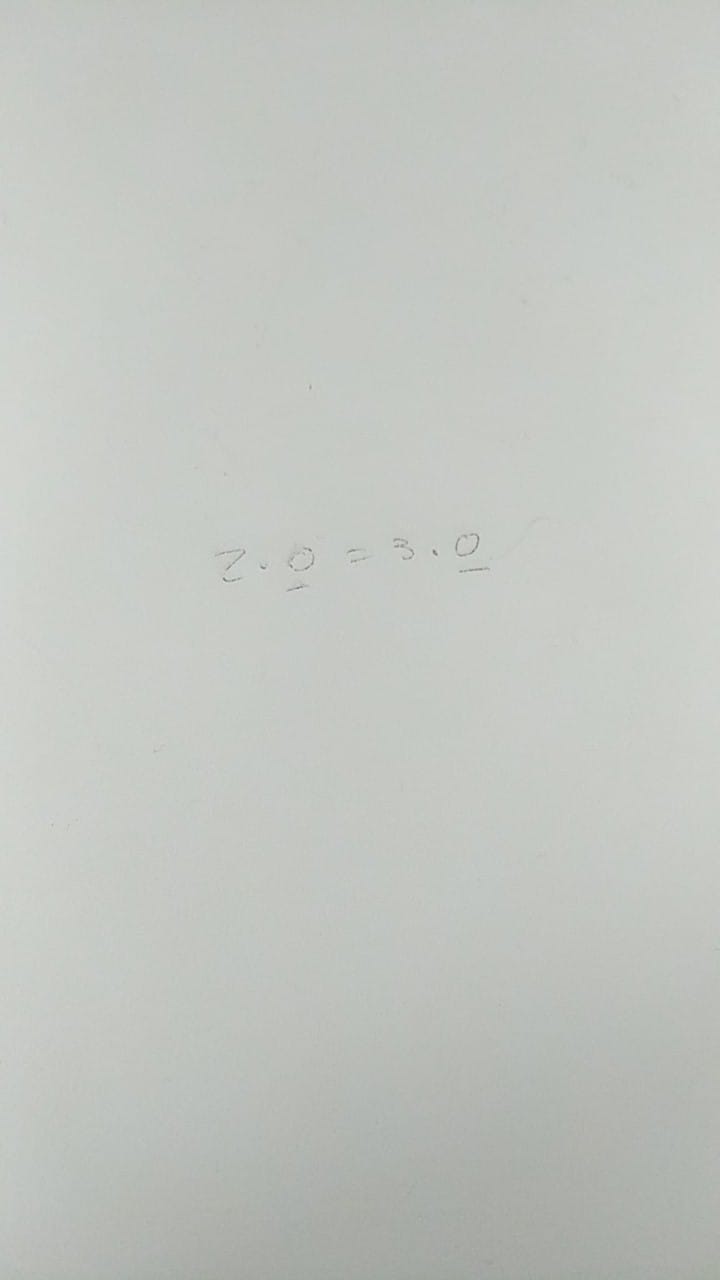 2 · 0 = 3 · 0